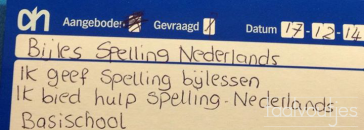 ah Aangeboden Gevraagd Datum 17-12-14
Bijles Spelling Nederlands
Ik geef Spelling bijlessen
Ik bied hulp Spelling. Nederlands
Basischool